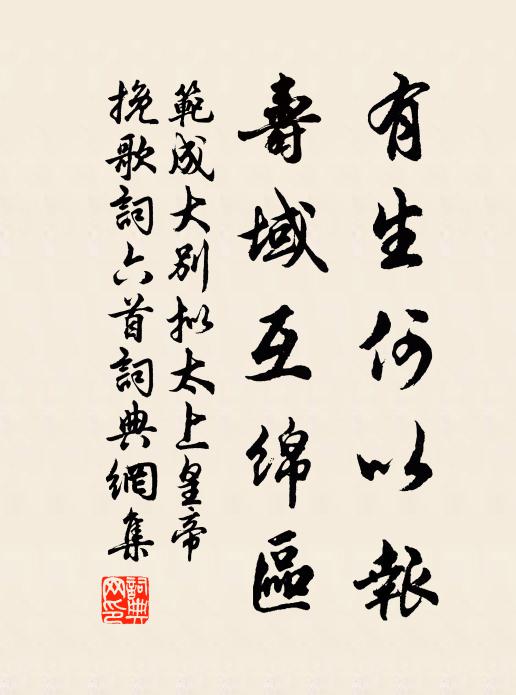 有生何以報
壽域互綿區
範成大别拟太上皇帝
挽歌詞六首詞典網集
詞典網印